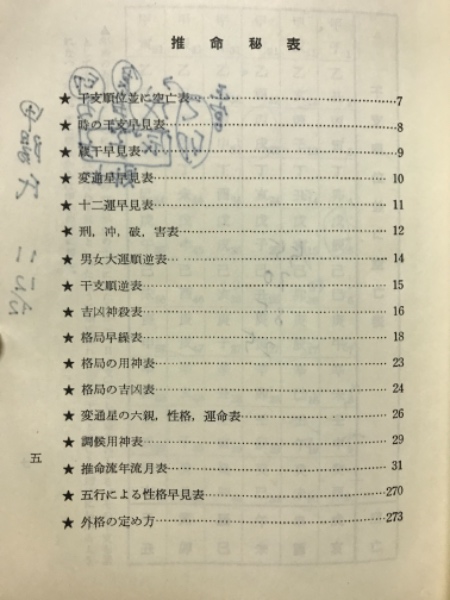 推命秘表
★ 干支順位並に空亡表 7
★ 時の干支早見表 8
★ 蔵干早見表 9
★ 変通星早見表 10
★ 十二運早見表 11
★ 刑，冲，破，害表 12
★ 男女大運順逆表 14
★ 干支順逆表 15
★ 吉凶神殺表 16
★ 格局早繰表 18
★ 格局の用神表 23
★ 格局の吉凶表 24
★ 変通星の六親，性格，運命表 26
★ 調候用神表 29
★ 推命流年流月表 31
★ 五行による性格早見表 270
★ 外格の定め方 273
五